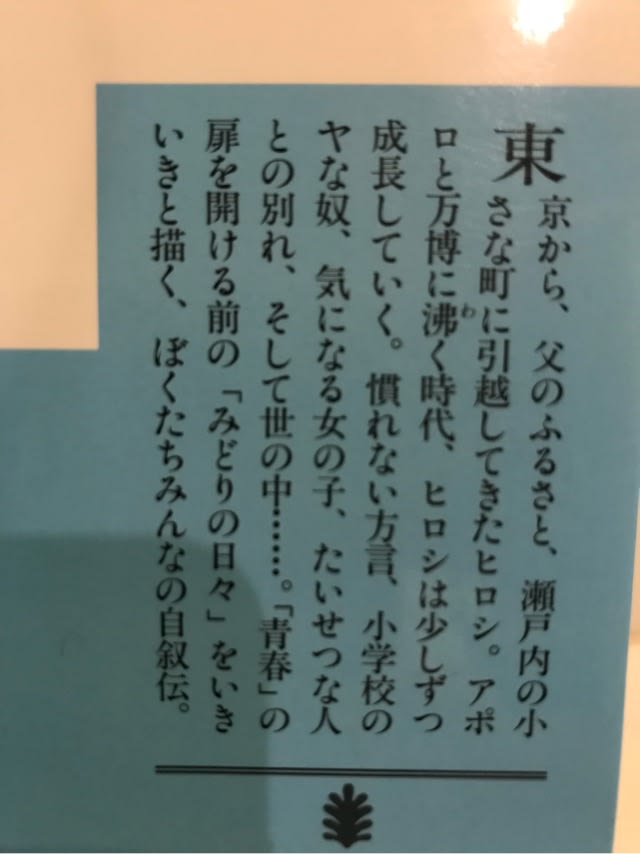 東京から、父のふるさと、瀬戸内の小
さな町に引越してきたヒロシ。アポ
ロと万博に沸く時代、ヒロシは少しずつ
成長していく。慣れない方言、小学校のイ
ヤな奴、気になる女の子、たいせつな人
との別れ、そして世の中……。「青春」の
扉を開ける前の「みどりの日々」をいき
いきと描く、ぼくたちみんなの自叙伝。
わ